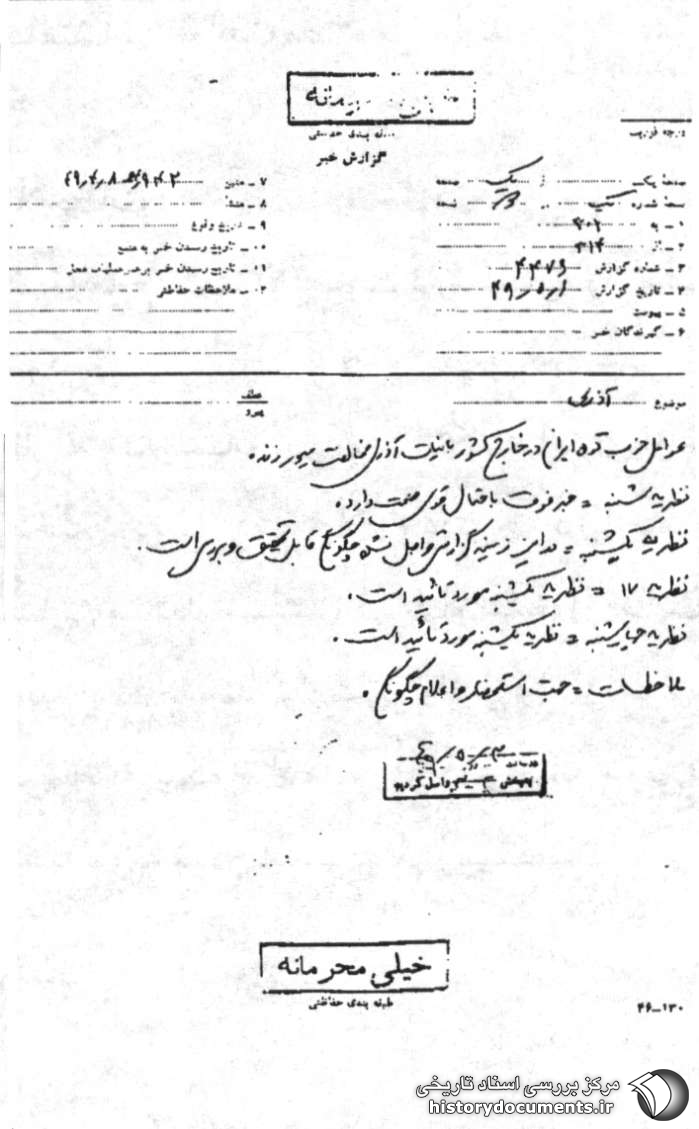 طبقه بندی حفاظتی
گزارش خبر
صفحه یک از یک صفحه
نسخه شماره یک از نسخه
۱ - به ۳۰۲
۲ - از ۳۱۴
۳ - شماره گزارش
۴ - تاریخ گزارش
۵ - پیوست
۶ - گیرندگان خبر
۷ - منبع
۸ - منشاء
۹ - تاریخ وقوع
۱۰ - تاریخ رسیدن خبر به منبع
۱۱ - تاریخ رسیدن خبر به رهبر عملیات محل
۱۲ - ملاحظات حفاظتی
موضوع آذری
عوامل حزب توده ایران در خارج کشور با نیات آذری مخالفت میورزند.
نظریه شنبه = خبر فوق باحتمال قوی صحت دارد.
نظریه یکشنبه = در این زمینه گزارشی واصل نشده چگونگی قابل تحقیق و بررسی است.
نظریه ۱۷ = نظریه یکشنبه مورد تائید است.
نظریه چهارشنبه = نظریه یکشنبه مورد تأئید است.
ملاحظات = جهت استحضار و اعلام چگونگی.
خیلی محرمانه
طبقه بندی حفاظتی
۴۶-۱۳۰
مرکز بررسی اسناد تاریخی
historydocuments.ir